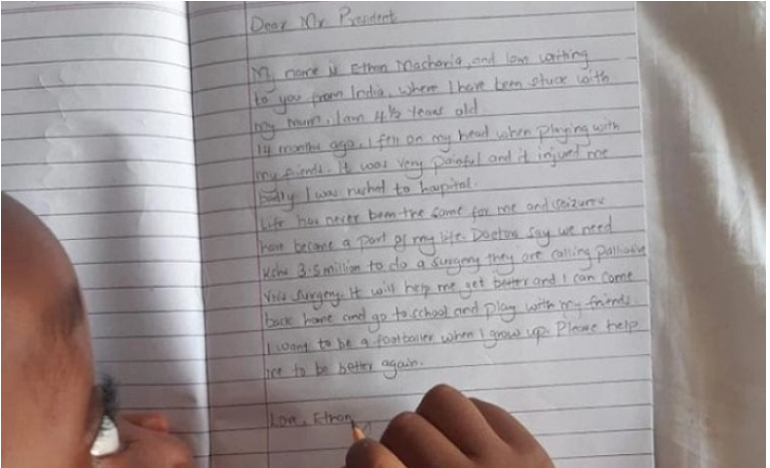 Dear Mr. President
My name is Ethan Macharia, and I am writing
to you from India, where I have been stuck with
my mum, I am 4½ years old.
14 months ago, I fell on my head when playing with
my friends. It was very painful and it injured me
badly I was rushed to hospital.
Life has never been the same for me and seizures
have become a part of my life. Doctors say we need
Kshs 3.5 million to do a surgery they are calling Palliative
VNS surgery. It will help me get better and I can come
back home and go to school and play with my friends.
I want to be a footballer when I grow up. Please help
me to be better again.
Love, Ethan